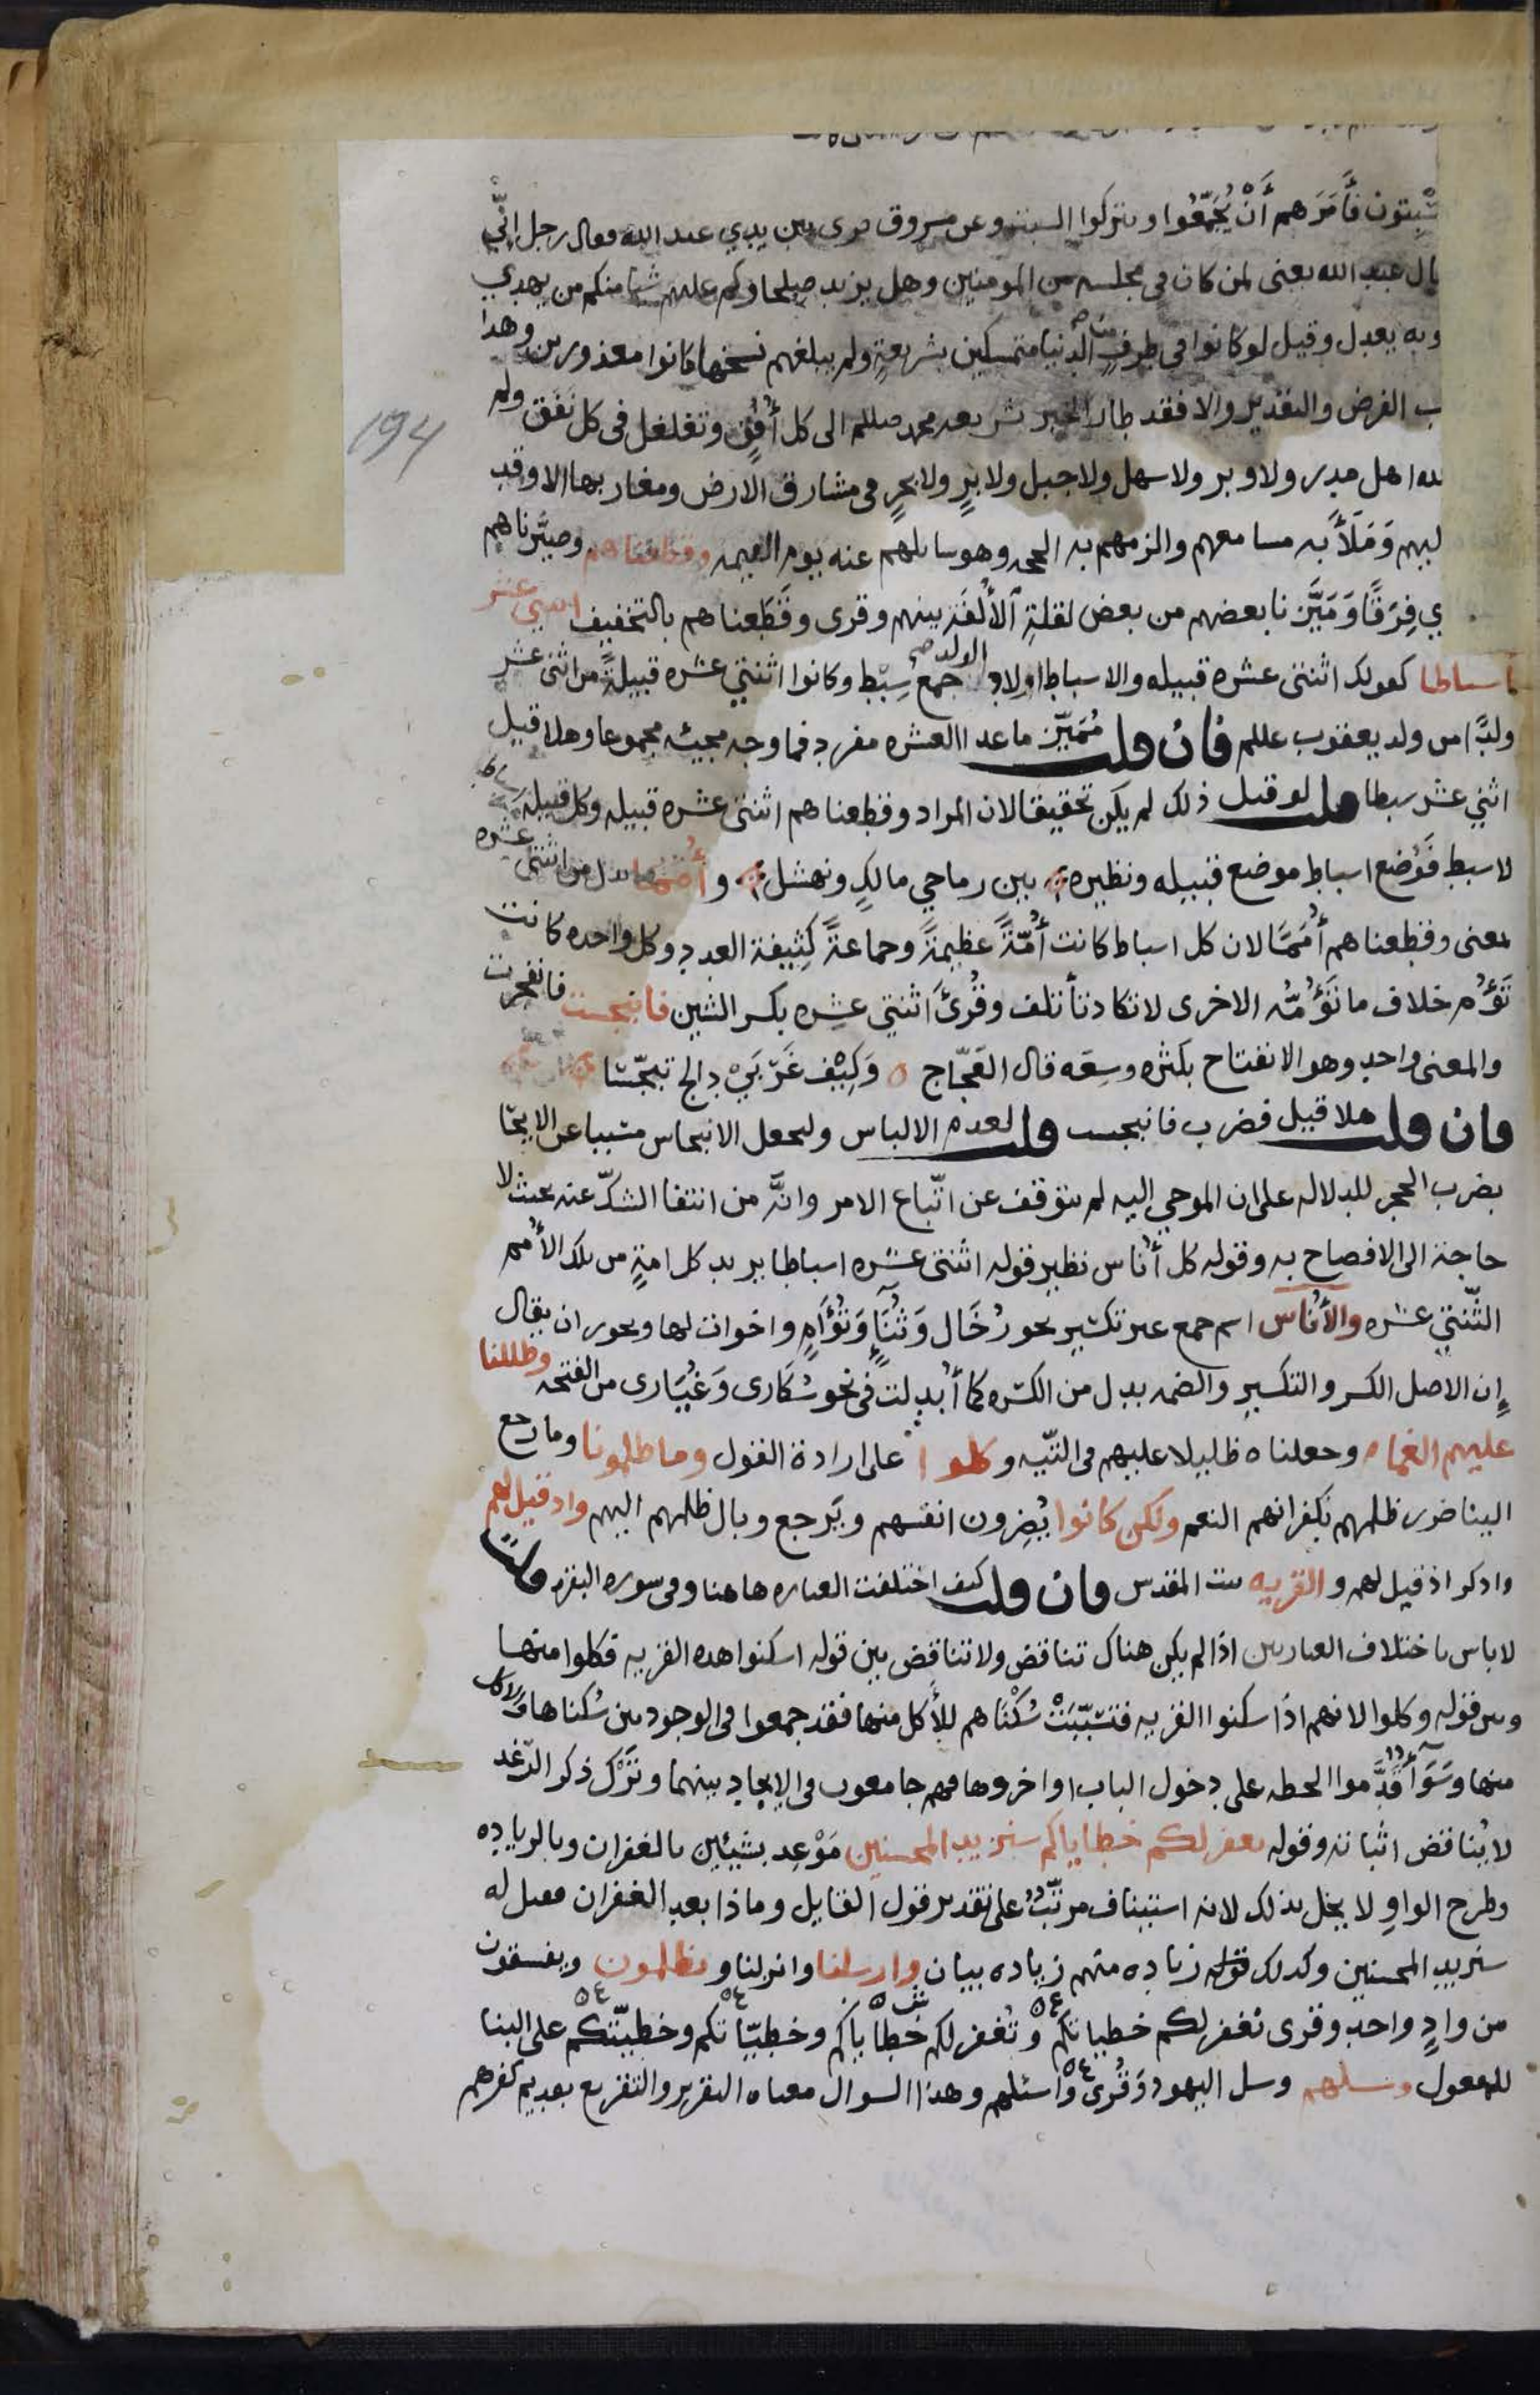 194
يسبتون فأمرهم أن يُجمّعوا ويتركوا السبت وعن مسروق قرئ بين يدي عبد الله فقال رجل إنّي
قال عبد الله يعني لمن كان في مجلسه من المومنين وهل يزيد صلحاوكم عليهم شيا منكم من يهدي
وبه يعدل وقيل لو كانوا في طرفٍ من الدنيا متمسكين بشريعةٍ ولم يبلغهم نسخها كانوا معذورين وهذا
ب الفرض والتقدير والا فقد طار الخبر بشريعه محمد صللم الى كل أُفُقٍ وتغلغل في كل نَفَق ولم
اهل مدر ولا وبر ولا سهل ولا جبل ولا برٍ ولا بحرٍ في مشارق الارض ومغاربها الا وقد
ليهم وَمَلَأَ به مسامعهم والزمهم به الحجه وهو سايلهم عنه يوم القيمه وقطعناهم وصيَّرناهم
ي فِرَقًا وَمَيَّزنا بعضهم من بعض لقلةِ الأُلْفَة بينهم وقرى وقَطَعناهم بالتخفيف اثنتي عشر
اسباطا كقولك اثنتى عشره قبيله والاسباط اولاد الولد جمع سِبْط وكانوا اثنتي عشره قبيلةً من اثنى عشر
ولدًا من ولد يعقوب عللم فان قلت مُمَيّز ما عدا العشره مفرد فما وجه مجيئه مجموعا وهلا قيل
اثني عشر سبطا قلت لو قيل ذلك لم يكن تحقيقا لان المراد وقطعناهم اثنتى عشره قبيله وكل قبيله
لا سبط فَوُضع اسباط موضع قبيله ونظيره بين رماحي مالكٍ ونهشل وأُمَمًا بدل من اثنتى عشره
لمعنى وقطعناهم أُمَمًا لان كل اسباط كانت أُمّةً عظيمةً وجماعةً كثِيفة العدد وكل واحده كانت
تَؤُم خلاف ما تَؤُمّه الاخرى لا تكاد تأتلف وقُرئَ اثنتي عشِره بكسر الشين فانبجست فانفجرت
والمعنى واحد وهو الانفتاح بكثره وسِعَه قال العَجّاج وَكِيْف غَرْبَيْ دالج تبجّسا
فان قلت هلا قيل فضرب فانبجست قلت لعدم الالباس وليجعل الانبجاس مسببا عن الايحا
بضرب الحجر للدلاله على ان الموحي إليه لم يتوقف عن اتّباع الامر وانَّه من انتفا الشكّ عنه بحيث لا
حاجة الى الافصاح به وقوله كل أُناس نظير قوله اثنتى عشره اسباطا يريد كل امةٍ من تلك الأُمم
الثّنتي عشره والأُناس اسم جمع غير تكسير نحو رُخَال وَثُنَاءٍ وَتُؤَامٍ واخوات لها ويجوز ان يقال
إن الاصل الكسر والتكسير والضمه بدل من الكسره كما أُبدلت في نحو سُكارى وَغُيَارى من الفتحه وظللنا
عليهم الغمام وجعلناه ظليلا عليهم في التّيه وكلوا على ارادة القول وما ظلمونا وما رجع
الينا ضرر ظلمهم بكفرانهم النعم ولكن كانوا يُضِرون انفسهم ويَرجع وبال ظلمهم اليهم واذ قيل لهم
واذكر اذ قيل لهم والقريه بيت المقدس فان قلت كيف اختلفت العباره هاهنا وفي سوره البقره قلت
لا باس باختلاف العبارتين اذا لم يكن هناك تناقض ولا تناقض بين قوله اسكنوا هذه القريه فكلوا منها
وبين قوله وكلوا لانهم اذا سكنوا القريه فتسبّبَتْ سُكْنَاهم للأكل منها فقد جمعوا في الوجود بين سُكناها والاكل
منها وسَوَآ أَقَدَّموا الحطه على دخول الباب او اخروها فهم جامعون في الإيجاد بينهما وتَرْك ذكر الرّغد
لا يُناقض اثباته وقوله نغفر لكم خطاياكم سنزيد المحسنين مَوْعِد بشيئين بالغفران وبالزياده
وطرح الواو لا يخل بذلك لانه استيناف مرتّبٌ على تقدير قول القايل وماذا بعد الغفران فقيل له
سنزيد المحسنين وكذلك قوله زياده منهم زياده بيان وارسلنا وانزلنا ويظلمون ويفسقون
من وادٍ واحد وقرى نغفر لكم خطيياتكم وتُغفر لكم خطاياكم وخطيّاتكم وخطيّتكم على البنا
للمفعول وسلهم وسل اليهود وَقُرى وأسئلهم وهذا السوال معناه التقرير والتقريع بقديم كفرهم